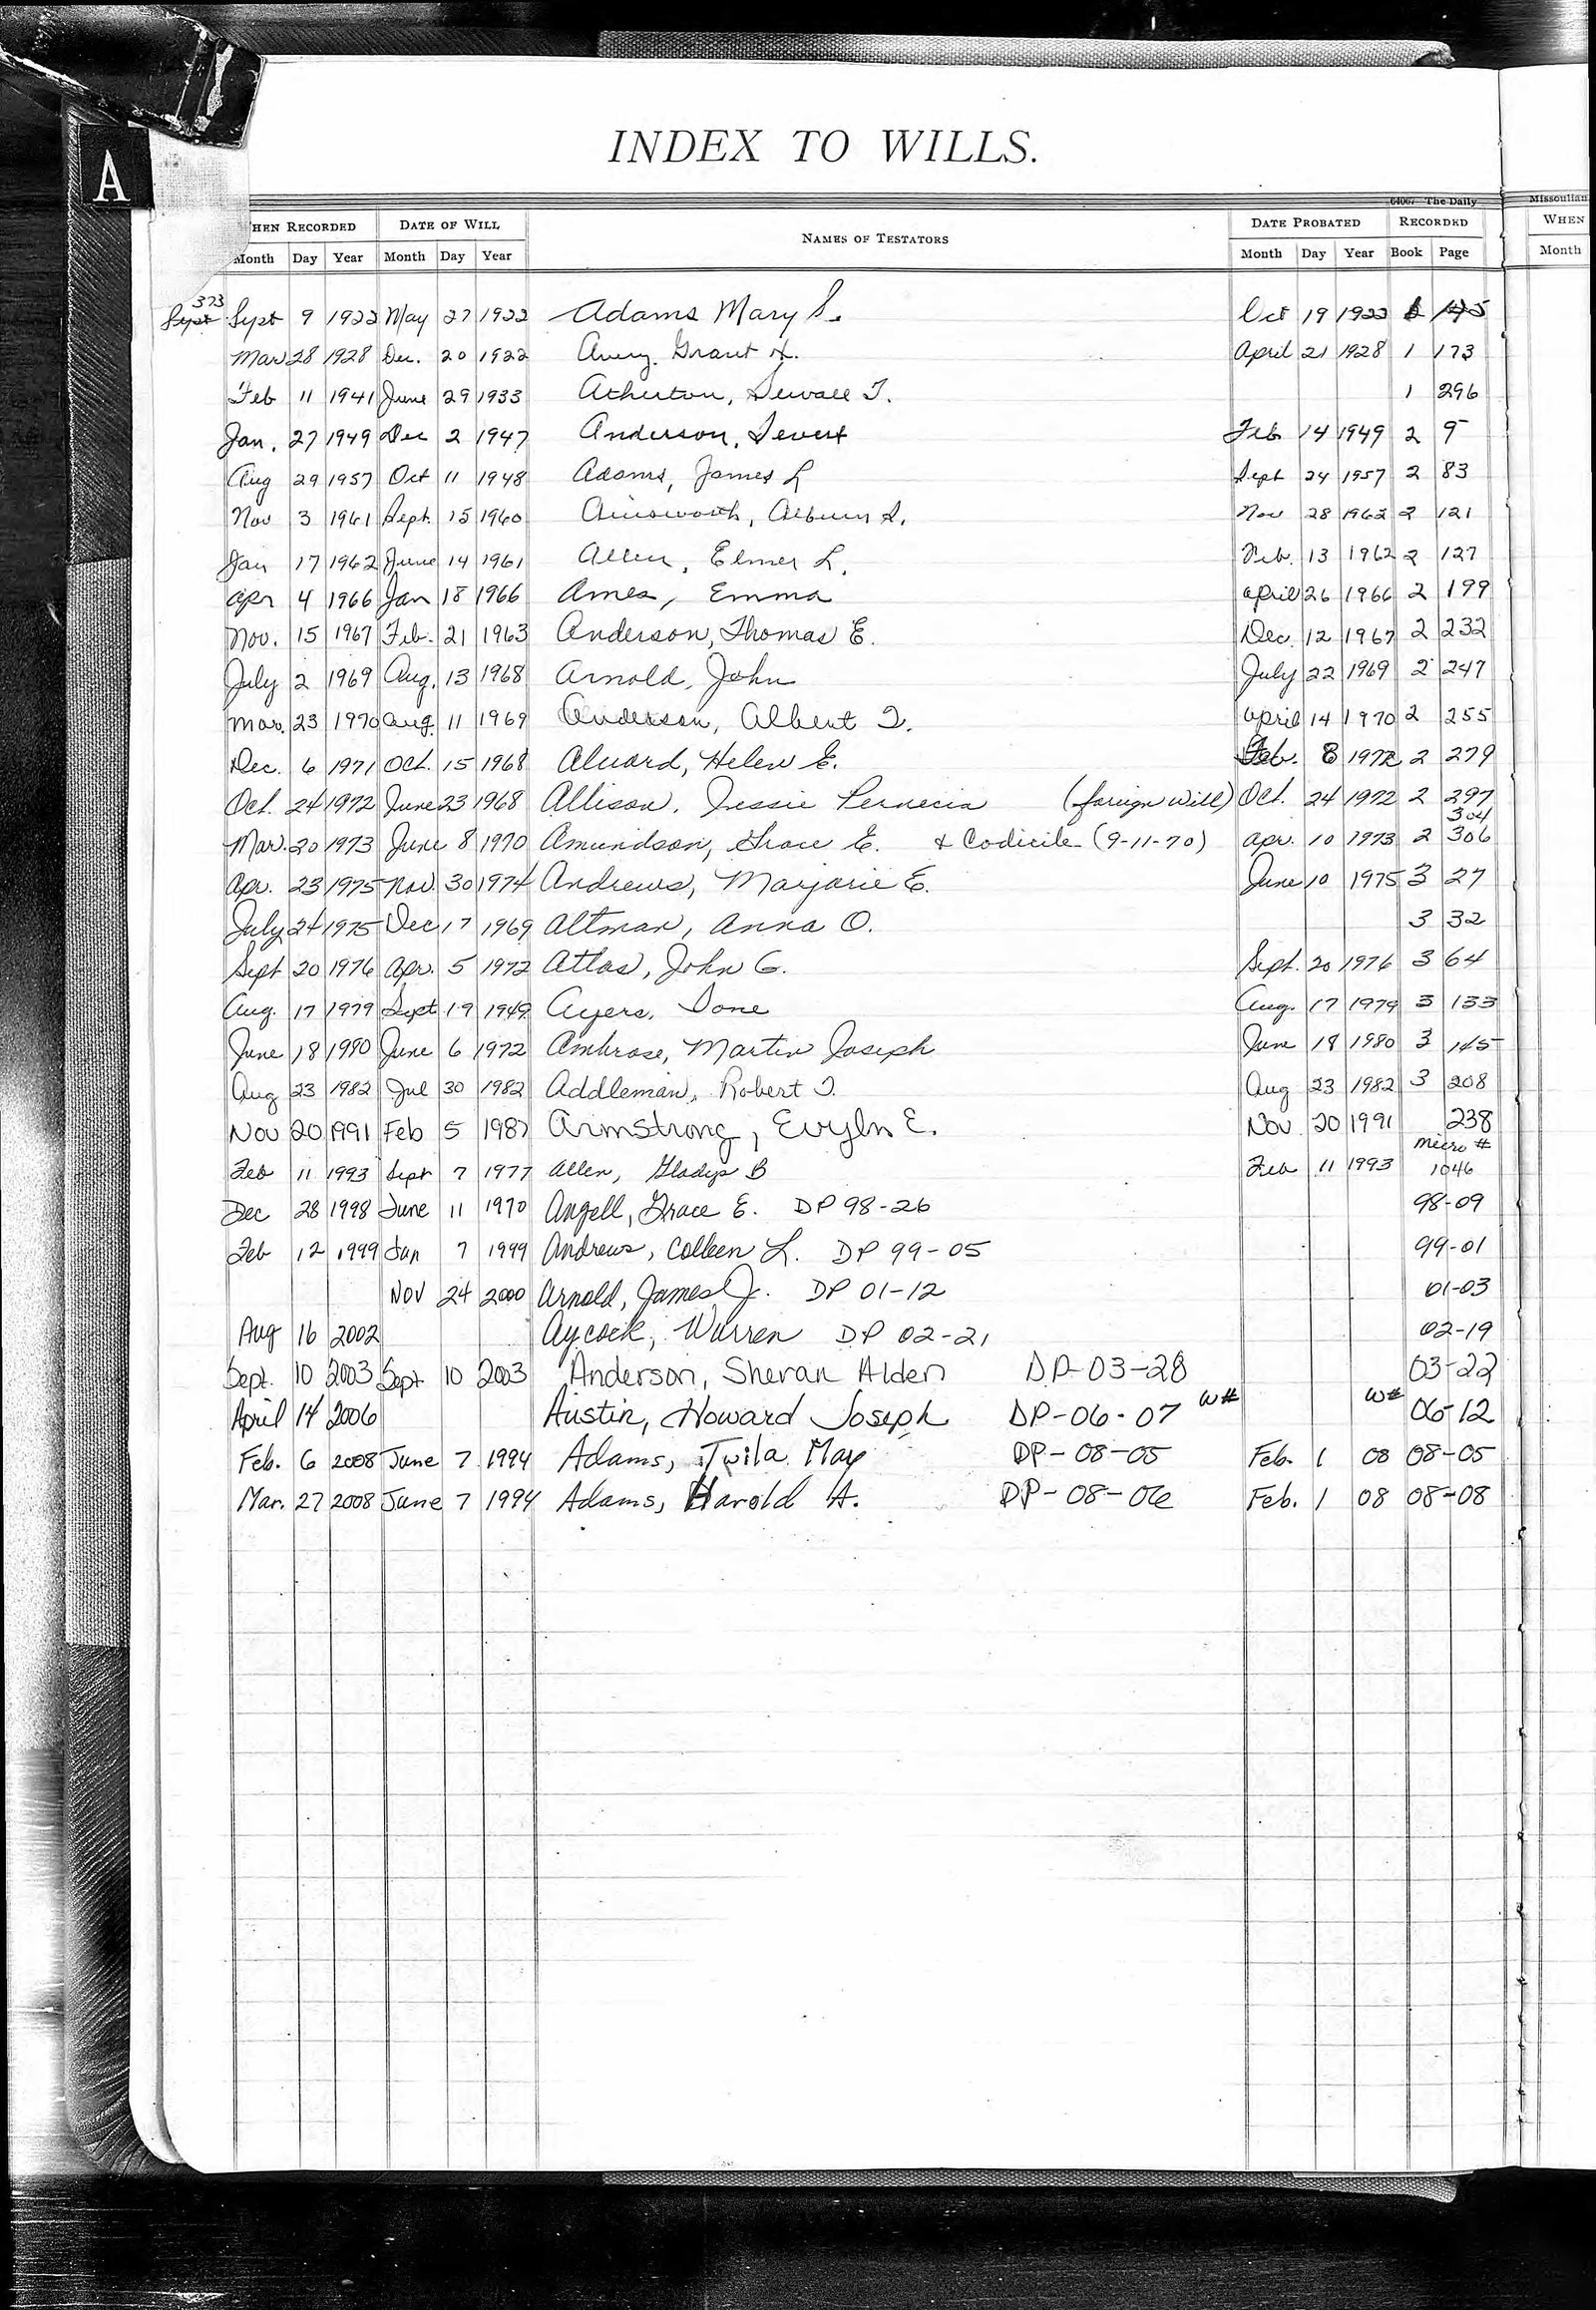 A
INDEX TO WILLS.
64067 The Daily Missoulian
WHEN RECORDED DATE OF WILL NAMES OF TESTATORS DATE PROBATED RECORDED WHEN
Month Day Year Month Day Year Month Day Year Book Page Month
373
Sept Sept 9 1922 May 27 1922 Adams Mary S. Oct 19 1922 1 145
Mar 28 1928 Dec. 20 1922 Avery, Grant H. April 21 1928 1 173
Feb 11 1941 June 29 1933 Atherton, Sewall T. 1 296
Jan. 27 1949 Dec 2 1947 Anderson, Severt Feb 14 1949 2 9
Aug 29 1957 Oct 11 1948 Adams, James L Sept 24 1957 2 83
Nov 3 1961 Sept. 15 1960 Ainsworth, Alburn S. Nov 28 1962 2 121
Jan 17 1962 June 14 1961 Allen, Elmer L. Feb. 13 1962 2 127
Apr 4 1966 Jan 18 1966 Ames, Emma April 26 1966 2 199
Nov. 15 1967 Feb. 21 1963 Anderson, Thomas E. Dec. 12 1967 2 232
July 2 1969 Aug. 13 1968 Arnold, John July 22 1969 2 247
Mar. 23 1970 Aug. 11 1969 Anderson, Albert T. April 14 1970 2 255
Dec. 6 1971 Oct. 15 1968 Alvord, Helen E. Feb. 8 1972 2 279
Oct. 24 1972 June 23 1968 Allison, Jessie (foreign will) Oct. 24 1972 2 297
304
Mar. 20 1973 June 8 1970 Amundson, Grace E. & Codicile (9-11-70) Apr. 10 1973 2 306
Apr. 23 1975 Nov. 30 1974 Andrews, Marjorie E. June 10 1975 3 27
July 24 1975 Dec 17 1969 Altman, Anna O. 3 32
Sept 20 1976 Apr. 5 1972 Atlas, John G. Sept. 20 1976 3 64
Aug. 17 1979 Sept 19 1949 Ayers, Ione Aug. 17 1979 3 133
June 18 1980 June 6 1972 Ambrose, Martin Joseph June 18 1980 3 145
Aug 23 1982 Jul 30 1982 Addleman, Robert T. Aug 23 1982 3 208
Nov 20 1991 Feb 5 1987 Armstrong, Evyln E. Nov 20 1991 238
micro #
Feb 11 1993 Sept 7 1977 Allen, Gladys B Feb 11 1993 1046
Dec 28 1998 June 11 1970 Angell, Grace E. DP 98-26 98-09
Feb 12 1999 Jan 7 1999 Andrews, Colleen L. DP 99-05 99-01
Nov 24 2000 Arnold, James J. DP 01-12 01-03
Aug 16 2002 Aycock, Warren DP 02-21 02-19
Sept. 10 2003 Sept 10 2003 Anderson, Sheran Alden DP-03-28 03-22
April 14 2006 Austin, Howard Joseph DP-06-07 W# W# 06-12
Feb. 6 2008 June 7 1994 Adams, Twila May DP-08-05 Feb. 1 08 08-05
Mar. 27 2008 June 7 1994 Adams, Harold A. DP-08-06 Feb. 1 08 08-08